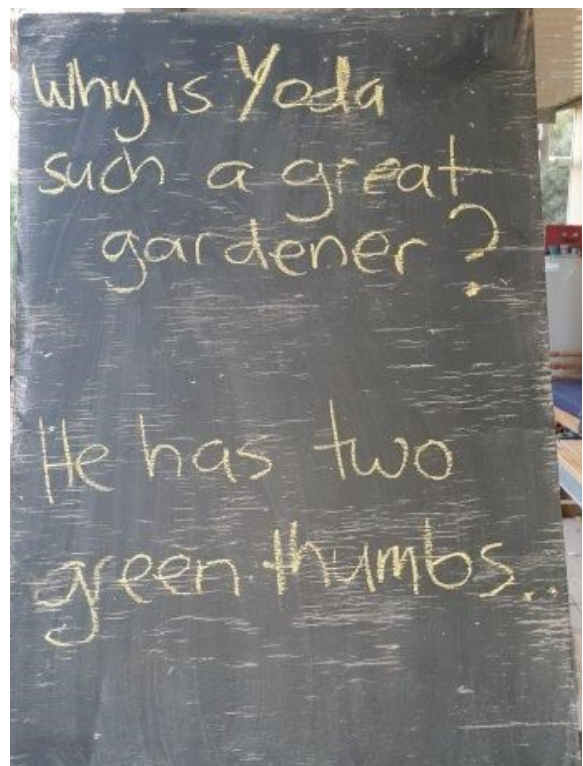 Why is Yoda
such a great
gardener?
He has two
green thumbs..